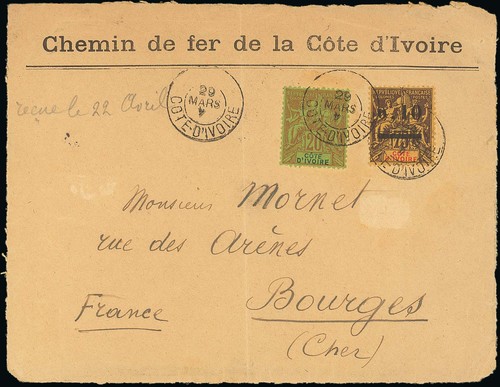 Chemin de fer de la Côte d'Ivoire
reçue le 22 Avril
29
MARS
COTE-D'IVOIRE
20
COTE
D'IVOIRE
29
MARS
COTE-D'IVOIRE
RÉPUBLIQUE FRANÇAISE
10
75
D'IVOIRE
Monsieur Mornet
rue des Arènes
Bourges
(Cher)
France